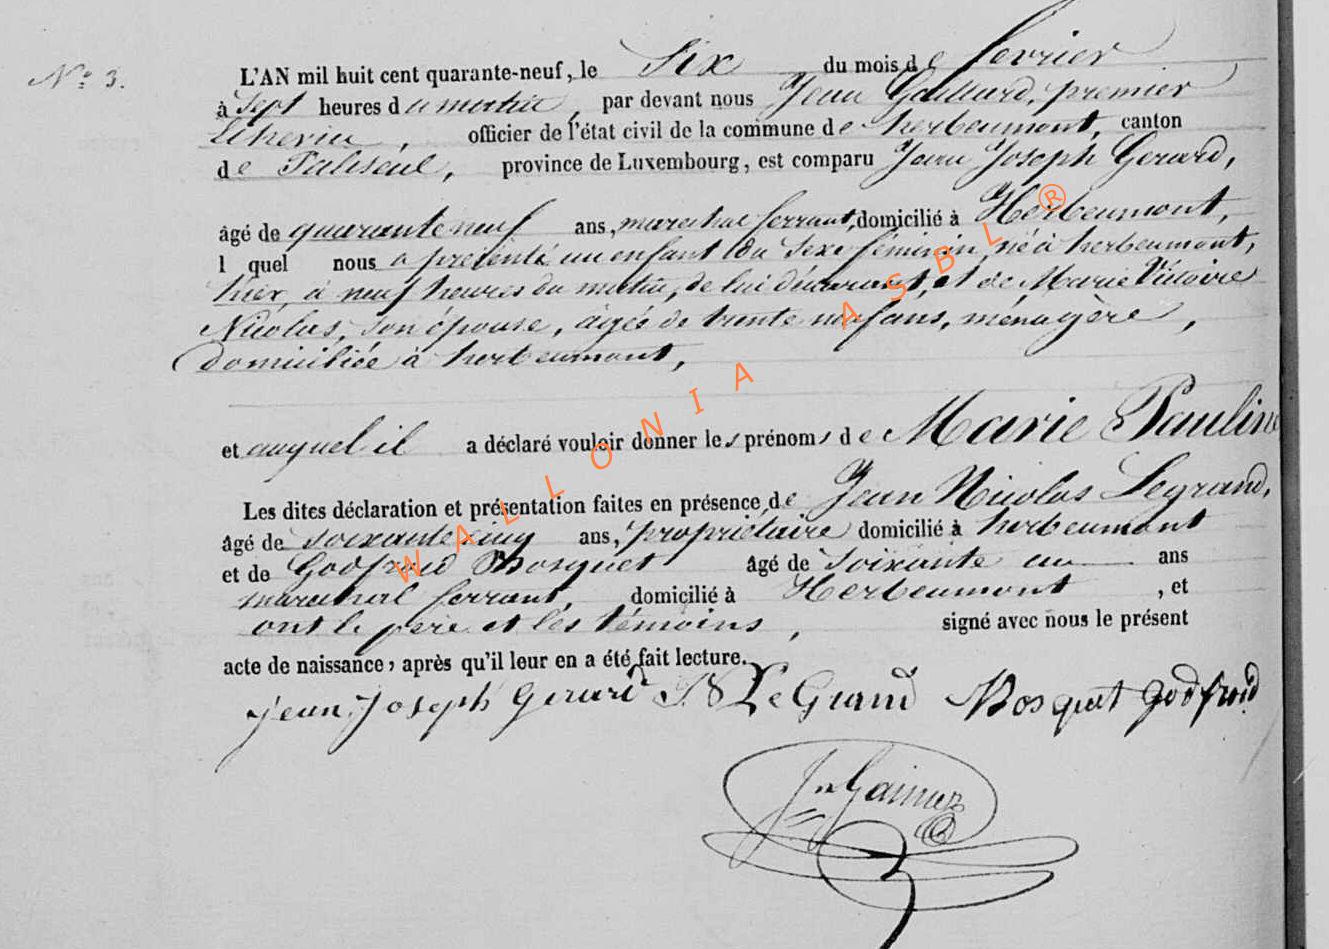 N° 3.
L'AN mil huit cent quarante-neuf, le Six du mois de fevrier
à Sept heures du matin, par devant nous Jean premier
Echevin, officier de l'état civil de la commune de herbeumont, canton
de Paliseul, province de Luxembourg, est comparu Jean Joseph Gerard,
âgé de quarante neuf ans, marechal ferrant, domicilié à Herbeumont,
l quel nous a présenté un enfant du Sexe féminin, né à herbeumont,
hier, à neuf heures du matin, de lui déclarant, et de Marie Victoire
Nicolas, son épouse, agée de trente neuf ans, ménagère,
domiciliée à herbeumont,
et auquel il a déclaré vouloir donner les prénoms de Marie Pauline
Les dites déclaration et présentation faites en présence de Jean Nicolas Legrand,
âgé de soixante cinq ans, propriétaire domicilié à herbeumont
et de Godfroid Bosquet âgé de soixante un ans
marechal ferrant, domicilié à Herbeumont, et
ont le père et les témoins, signé avec nous le présent
acte de naissance, après qu'il leur en a été fait lecture.
jean joseph gerard J N LeGrand Bosquet godfroid
WALLONIA ASBL ®